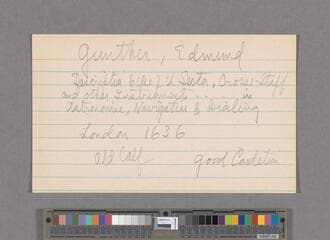 Gunther, Edmund
Description & Use of the Sector, Cross-Staff
and other Instruments .... in
Astronomie, Navigation & Dialing
London 1636
Old Calf good Condition